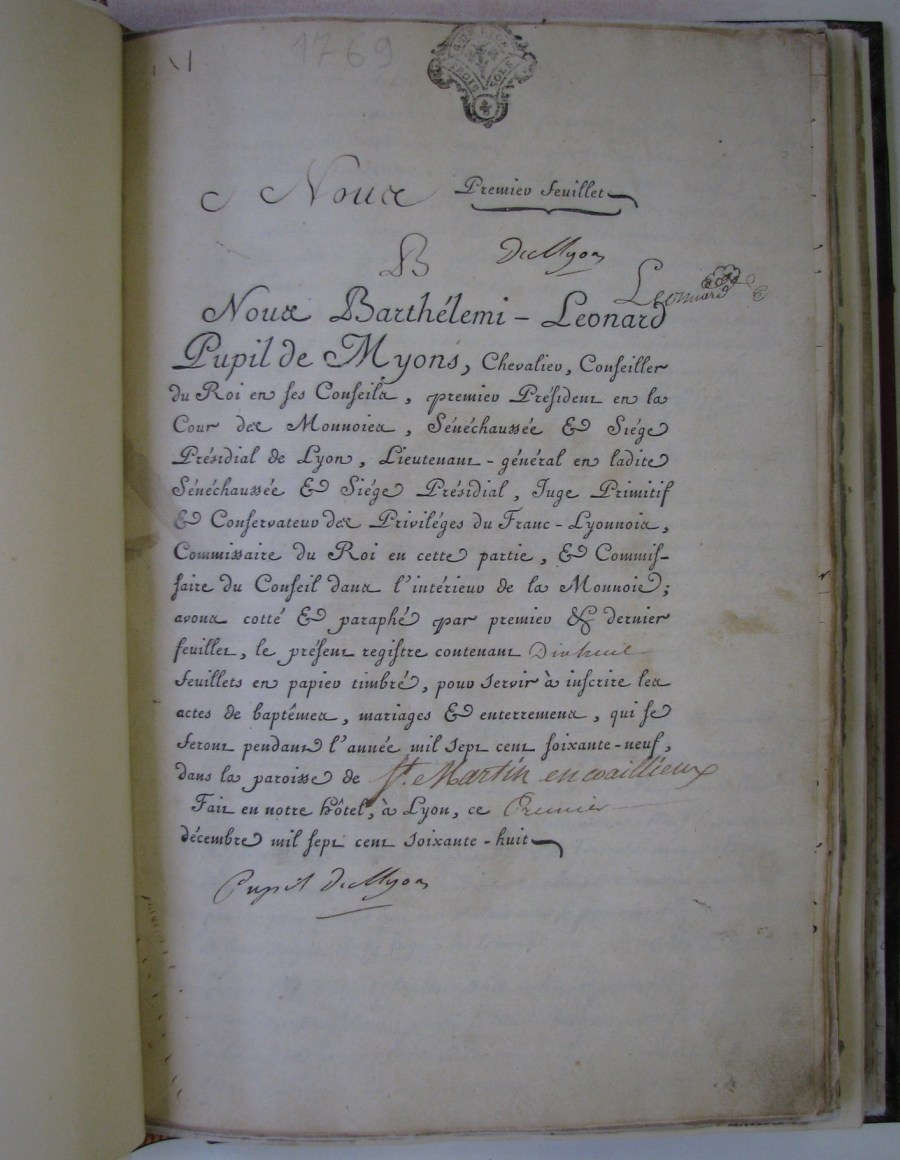 1769
Nous Premier feuillet
DeMyons
B
Leonard
Nous Barthélemi - Leonard
Pupil de Myons, Chevalier, Conseiller
du Roi en ses Conseils, premier Président en la
Cour des Monnoies, Sénéchaussée & Siége
Présidial de Lyon, Lieutenant-général en ladite
Sénéchaussée & Siége Présidial, Juge Primitif
& Conservateur des Priviléges du Franc-Lyonnois,
Commissaire du Roi en cette partie, & Commis-
saire du Conseil dans l'intérieur de la Monnoie;
avons cotté & paraphé par premier & dernier
feuillet, le présent registre contenant Dixhuit
feuillets en papier timbré, pour servir à inscrire les
actes de baptêmes, mariages & enterremens, qui se
feront pendant l'année mil sept cent soixante-neuf,
dans la paroisse de St. Martin en coaillieux
Fait en notre hôtel, à Lyon, ce Premier
décembre mil sept cent soixante-huit
Pupil deMyons